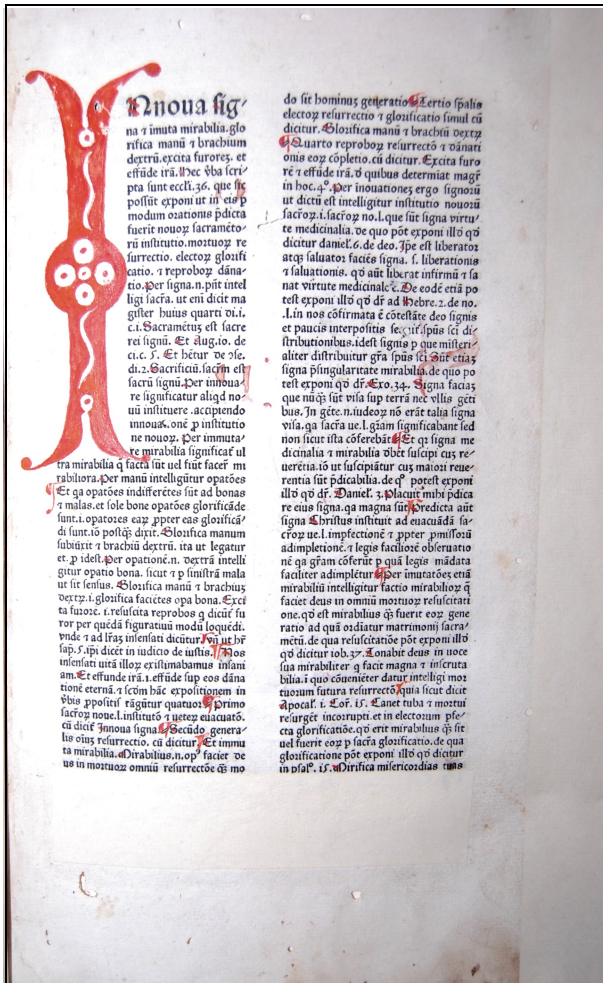 INnoua sig⸗
na ⁊ ĩmuta mirabilia.glo
rifica manũ ⁊ brachium
dextrũ.excita furorez. et
effũde irã. Hec ṽba scri⸗
pta sunt eccľi.36. que sic
possũt exponi ut in eis p
modum orationis p̃dicta
fuerit nouoꝝ sacramẽto⸗
rũ institutio.mortuoꝝ re
surrectio. electoꝝ glorifi
catio. ⁊ reproboꝝ dãna⸗
tio.Per signa.n.pñt intel
ligi sacr̃a. ut eni dicit ma
gister huius quarti di.i.
c.i.Sacramẽtuz est sacre
rei signũ. Et Aug.io. de
ci.c. 5. Et hẽtur de ɔse.
di.2.Sacrificiũ.sacr̃m est
sacrũ signũ.Per innoua⸗
re significatur aliqd no⸗
uũ instituere .accipiendo
innoua⸗.onẽ ꝓ institutio
ne nouoꝝ. Per immuta⸗
re mirabilia significat᷑ ul
tra mirabilia q̃ facta sũt uel fiũt facer̃ mi
rabiliora.Per manũ intelligũtur opatões
Et qa opatões indifferẽtes sũt ad bonas
⁊ malas.et sole bone opatões glorificãde
sunt.i.opatores eaꝝ ꝓpter eas glorificã⸗
di sunt.iõ postq̃ȝ dixit. Glorifica manum
subiũxit ⁊ brachiũ dextrũ. ita ut legatur
et.ꝓ idest.Per opationẽ.n. dextrã intelli
gitur opatio bona. sicut ⁊ p sinistrã mala
ut sit sensus. Glorifica manũ ⁊ brachiuz
dextꝝ.i.glorifica faciẽtes opa bona. Exci
ta furorẽ. i.resuscita reprobos q̃ dicũt᷑ fu
ror per quẽdã figuratiuũ modũ loquẽdi.
vnde ⁊ ad lr̃as insensati dicũtur.vñ ut hr̃
sap.5.ip̃i dicẽt in iudicio de iustis. Nos
insensati uitã illoꝝ existimabamus insani
am.Et effunde irã.i.effũde sup eos dãna
tionẽ eternã.⁊ scďm hãc expositionem in
ṽbis ꝓpositis tãgũtur quatuor. Primo
sacroꝝ noue.l.institutõ ⁊ ueteꝝ euacuatõ.
cũ dicit᷑ Innoua signa. Secũdo genera⸗
lis oĩuȝ resurrectio. cũ dicitur. Et immu
ta mirabilia.Mirabilius.n.op᷒ faciet de
us in mortuoꝝ omniũ resurrectõe q̃ȝ mo
do sit hominuȝ generatio. Tertio sp̃alis
electoꝝ resurrectio ⁊ glorificatio simul cũ
dicitur. Glorifica manũ ⁊ brachiũ dextꝝ
Quarto reproboꝝ resurrectõ ⁊ dãnati
onis eoꝝ cõpletio.cũ dicitur. Excita furo
rẽ ⁊ effude irã.đ quibus determiat magr̃
in hoc.4º. Per inouationeȝ ergo signoꝝ
ut dictũ est intelligitur institutio nouoꝝ
sacroꝝ.i.sacr̃oꝝ no.l.que sũt signa virtu⸗
te medicinalia. de quo põt exponi illď qď
dicitur daniel̃.6.de deo. Ip̃e est liberator
atqȝ saluator faciẽs signa. s. liberationis
⁊ saluationis. qď aũt liberat infirmũ ⁊ sa
nat virtute medicinale ẽ.De eodẽ etiã po
test exponi illď qď dr̃ ad Hebre.2.de no.
.l.in nos cõfirmata ẽ cõtestãte deo signis
et paucis interpositis seq̃t᷑.sp̃us scĩ di⸗
stributionibus.idest signis p que misteri⸗
aliter distribuitur gr̃a sp̃us scĩ Sũt etiaȝ
signa ꝓ singularitate mirabilia.de quo po
test exponi qď dr̃.Exo.34. Signa faciaȝ
que nũq̃ȝ sũt visa sup terrã nec ullis gẽti
bus. In gẽte.n.iudeoꝝ nõ erãt talia signa
visa.qa sacr̃a ue.l.gr̃am significabant sed
non sicut ista cõferebãt. Et qr̃ signa me
dicinalia ⁊ mirabilia dẽbẽt suscipi cuȝ re⸗
uerẽtia.iõ ut suscipiãtur cuȝ maiori reue⸗
rentia sũt p̃dicabilia.de qº potest exponi
illď qď dr̃. Daniel̃. 3.Placuit mihi p̃dica
re eius signa.qa magna sũt. Predicta aũt
signa Christus instituit ad euacuãdã sa⸗
cr̃oꝝ ue.l.impfectionẽ ⁊ ꝓpter ꝓmissoꝝ
adimpletionẽ.⁊ legis faciliorẽ obseruatio
nẽ qa gr̃am cõferũt p quã legis mãdata
faciliter adimplẽtur. Per imutatões etiã
mirabiliũ intelligitur factio mirabilioꝝ q̃
faciet deus in omniũ mortuoꝝ resuscitati
one.qď est mirabilius q̃ȝ fuerit eoꝝ gene
ratio ad quã ordiatur matrimonij sacra⸗
mẽtũ.de qua resuscitatiõe põt exponi illď
qď dicitur iob.37.Tonabit deus in uoce
sua mirabiliter q̃ facit magna ⁊ inscruta
bilia.ĩ quo cõueniẽter datur intelligi mor
tuorum futura resurrectõ.quia sicut dicit
Apocal̃. i. Coř. i5. Canet tuba ⁊ mortui
resurgẽt incorrupti.et in electorum pfe⸗
cta glorificatiõe.qď erit mirabilius q̃ȝ sit
uel fuerit eoꝝ p sacr̃a glorificatio.de qua
glorificatione põt exponi illď qď dicitur
in psal̃º. i5. Mirifica misericordias tuas